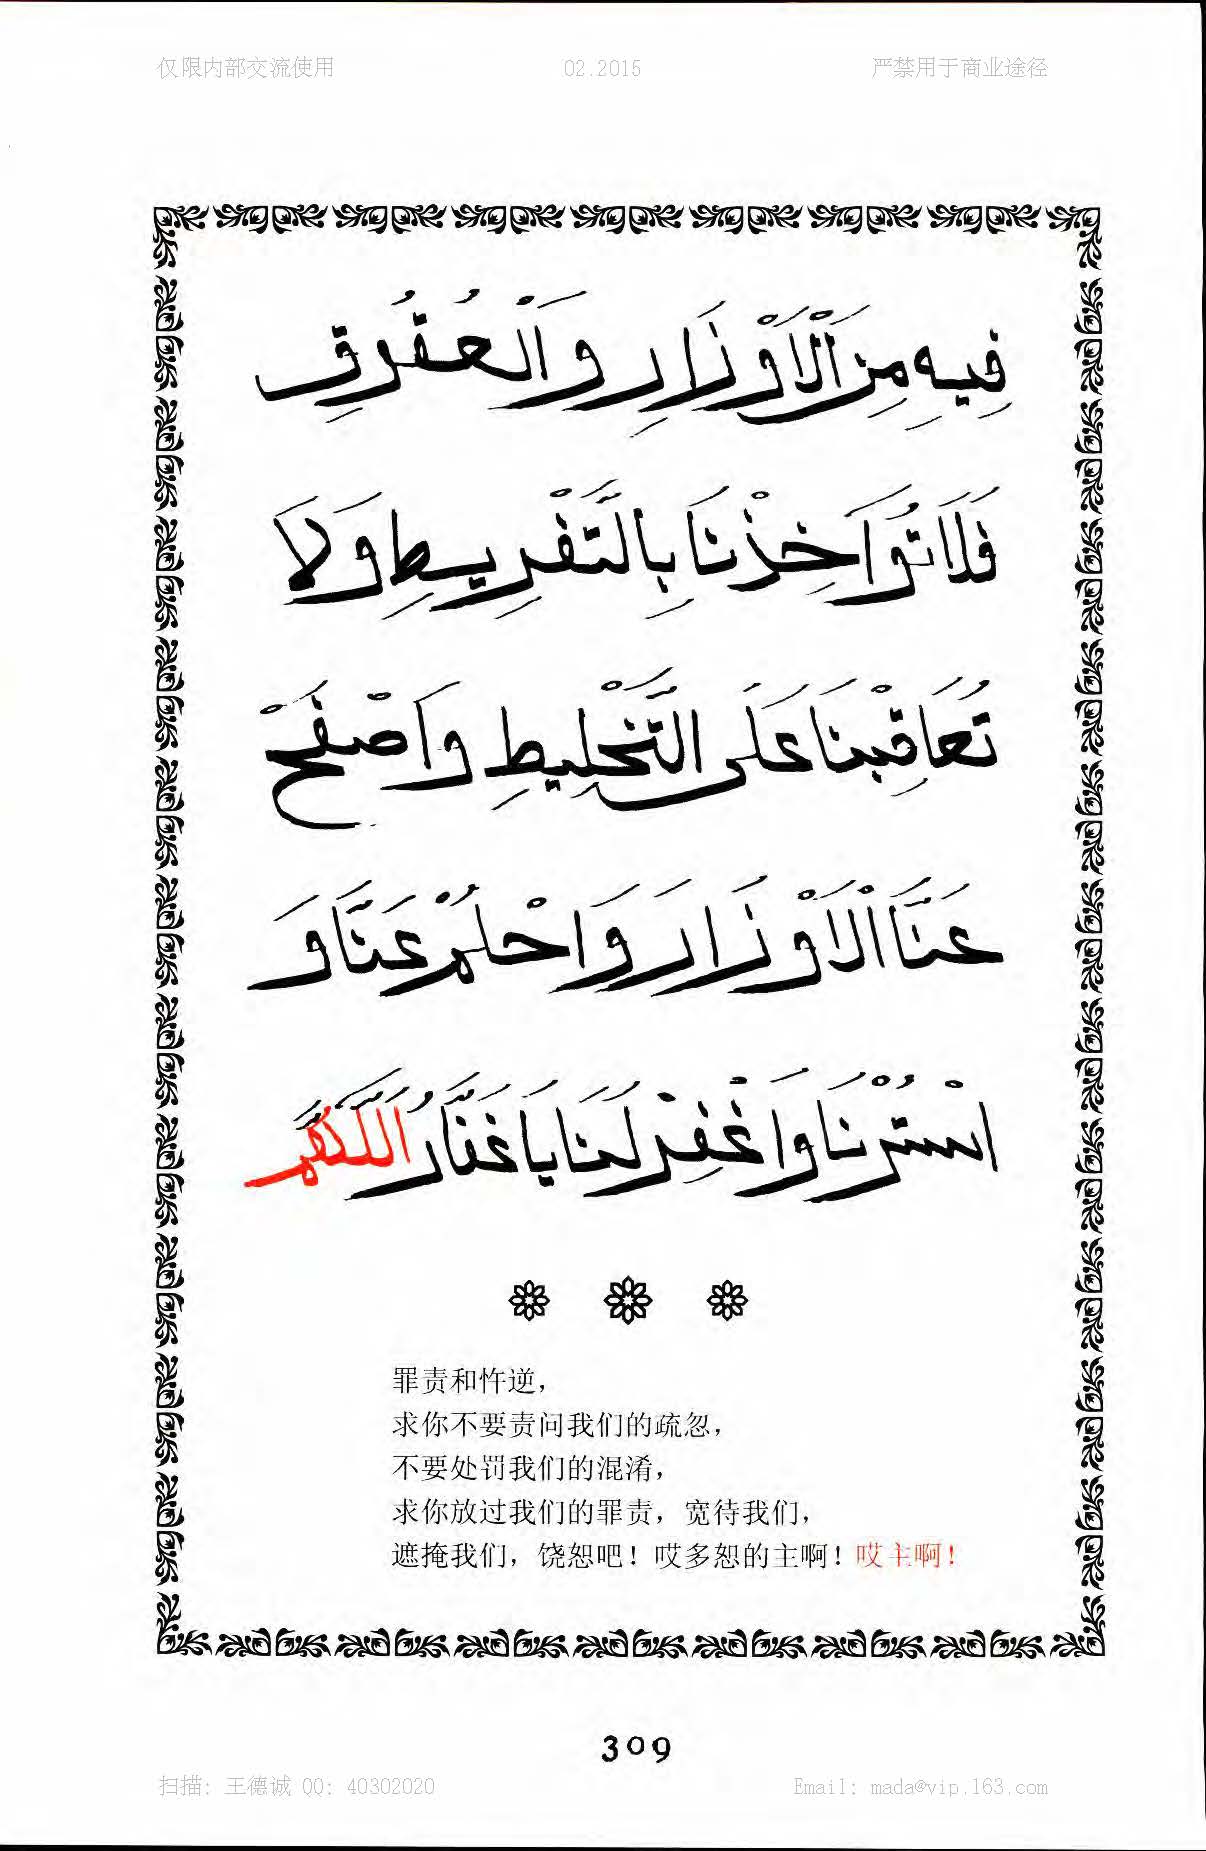 仅限内部交流使用 02.2015 严禁用于商业途径
فِيهِ مِنَ الْاَوْزَارِ وَالْعُقُوقِ
فَلَا تُؤَاخِذْنَا بِالتَّفْرِيطِ وَلَا
تُعَاقِبْنَا عَلَى التَّخْلِيطِ وَاصْفَحْ
عَنَّا الْاَوْزَارَ وَاحْلُمْ عَنَّا وَ
اسْتُرْنَا وَاغْفِرْ لَنَا يَا غَفَّارُ اَللّٰهُمَّ
罪责和忤逆，
求你不要责问我们的疏忽，
不要处罚我们的混淆，
求你放过我们的罪责，宽待我们，
遮掩我们，饶恕吧！哎多恕的主啊！哎主啊！
309
扫描: 王德诚 QQ: 40302020 Email: mada@vip.163.com